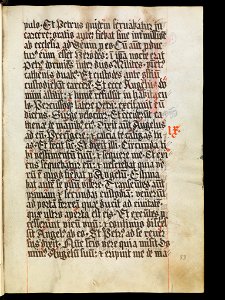 pulo. Et Petrus quidem seruabatur in
carcere: oratio autem fiebat sine intermissione
ab ecclesia ad deum pro eo. Cum autem produc
turus eum esset Herodes: in ipsa nocte erat
Petrus dormiens inter duos milites: vinctus
cathenis duabus. Et custodes ante ostium
custodiebant carcerem. Et ecce Angelus do
mini astitit: et lumen refulsit in habitacu
lo. Percussoque latere petri: excitauit eum
dicens. Surge velociter. Et ceciderunt ca
thene de manibus eius. Dixit autem Angelus
ad eum. Precingere: et calcia te caligas tu
as. Et fecit sic. Et dixit illi. Circumda ti
bi vestimentum tuum: et sequere me. Et exi
ens sequebatur eum: et nesciebat quia ve
rum est quod fiebat per Angelum. Estima
bat autem se visum videre. Transeuntes autem
primam et secundam custodiam: venerunt
ad portam ferream que ducit ad ciuitatem
que ultro aperta est eis. Et exeuntes p
cesserunt vicum unum: et continuo disces
sit Angelus ab eo. Et Petrus ad se reuer
sus dixit. Nunc scio vere quia misit do
minus Angelum suum: et eripuit me de ma